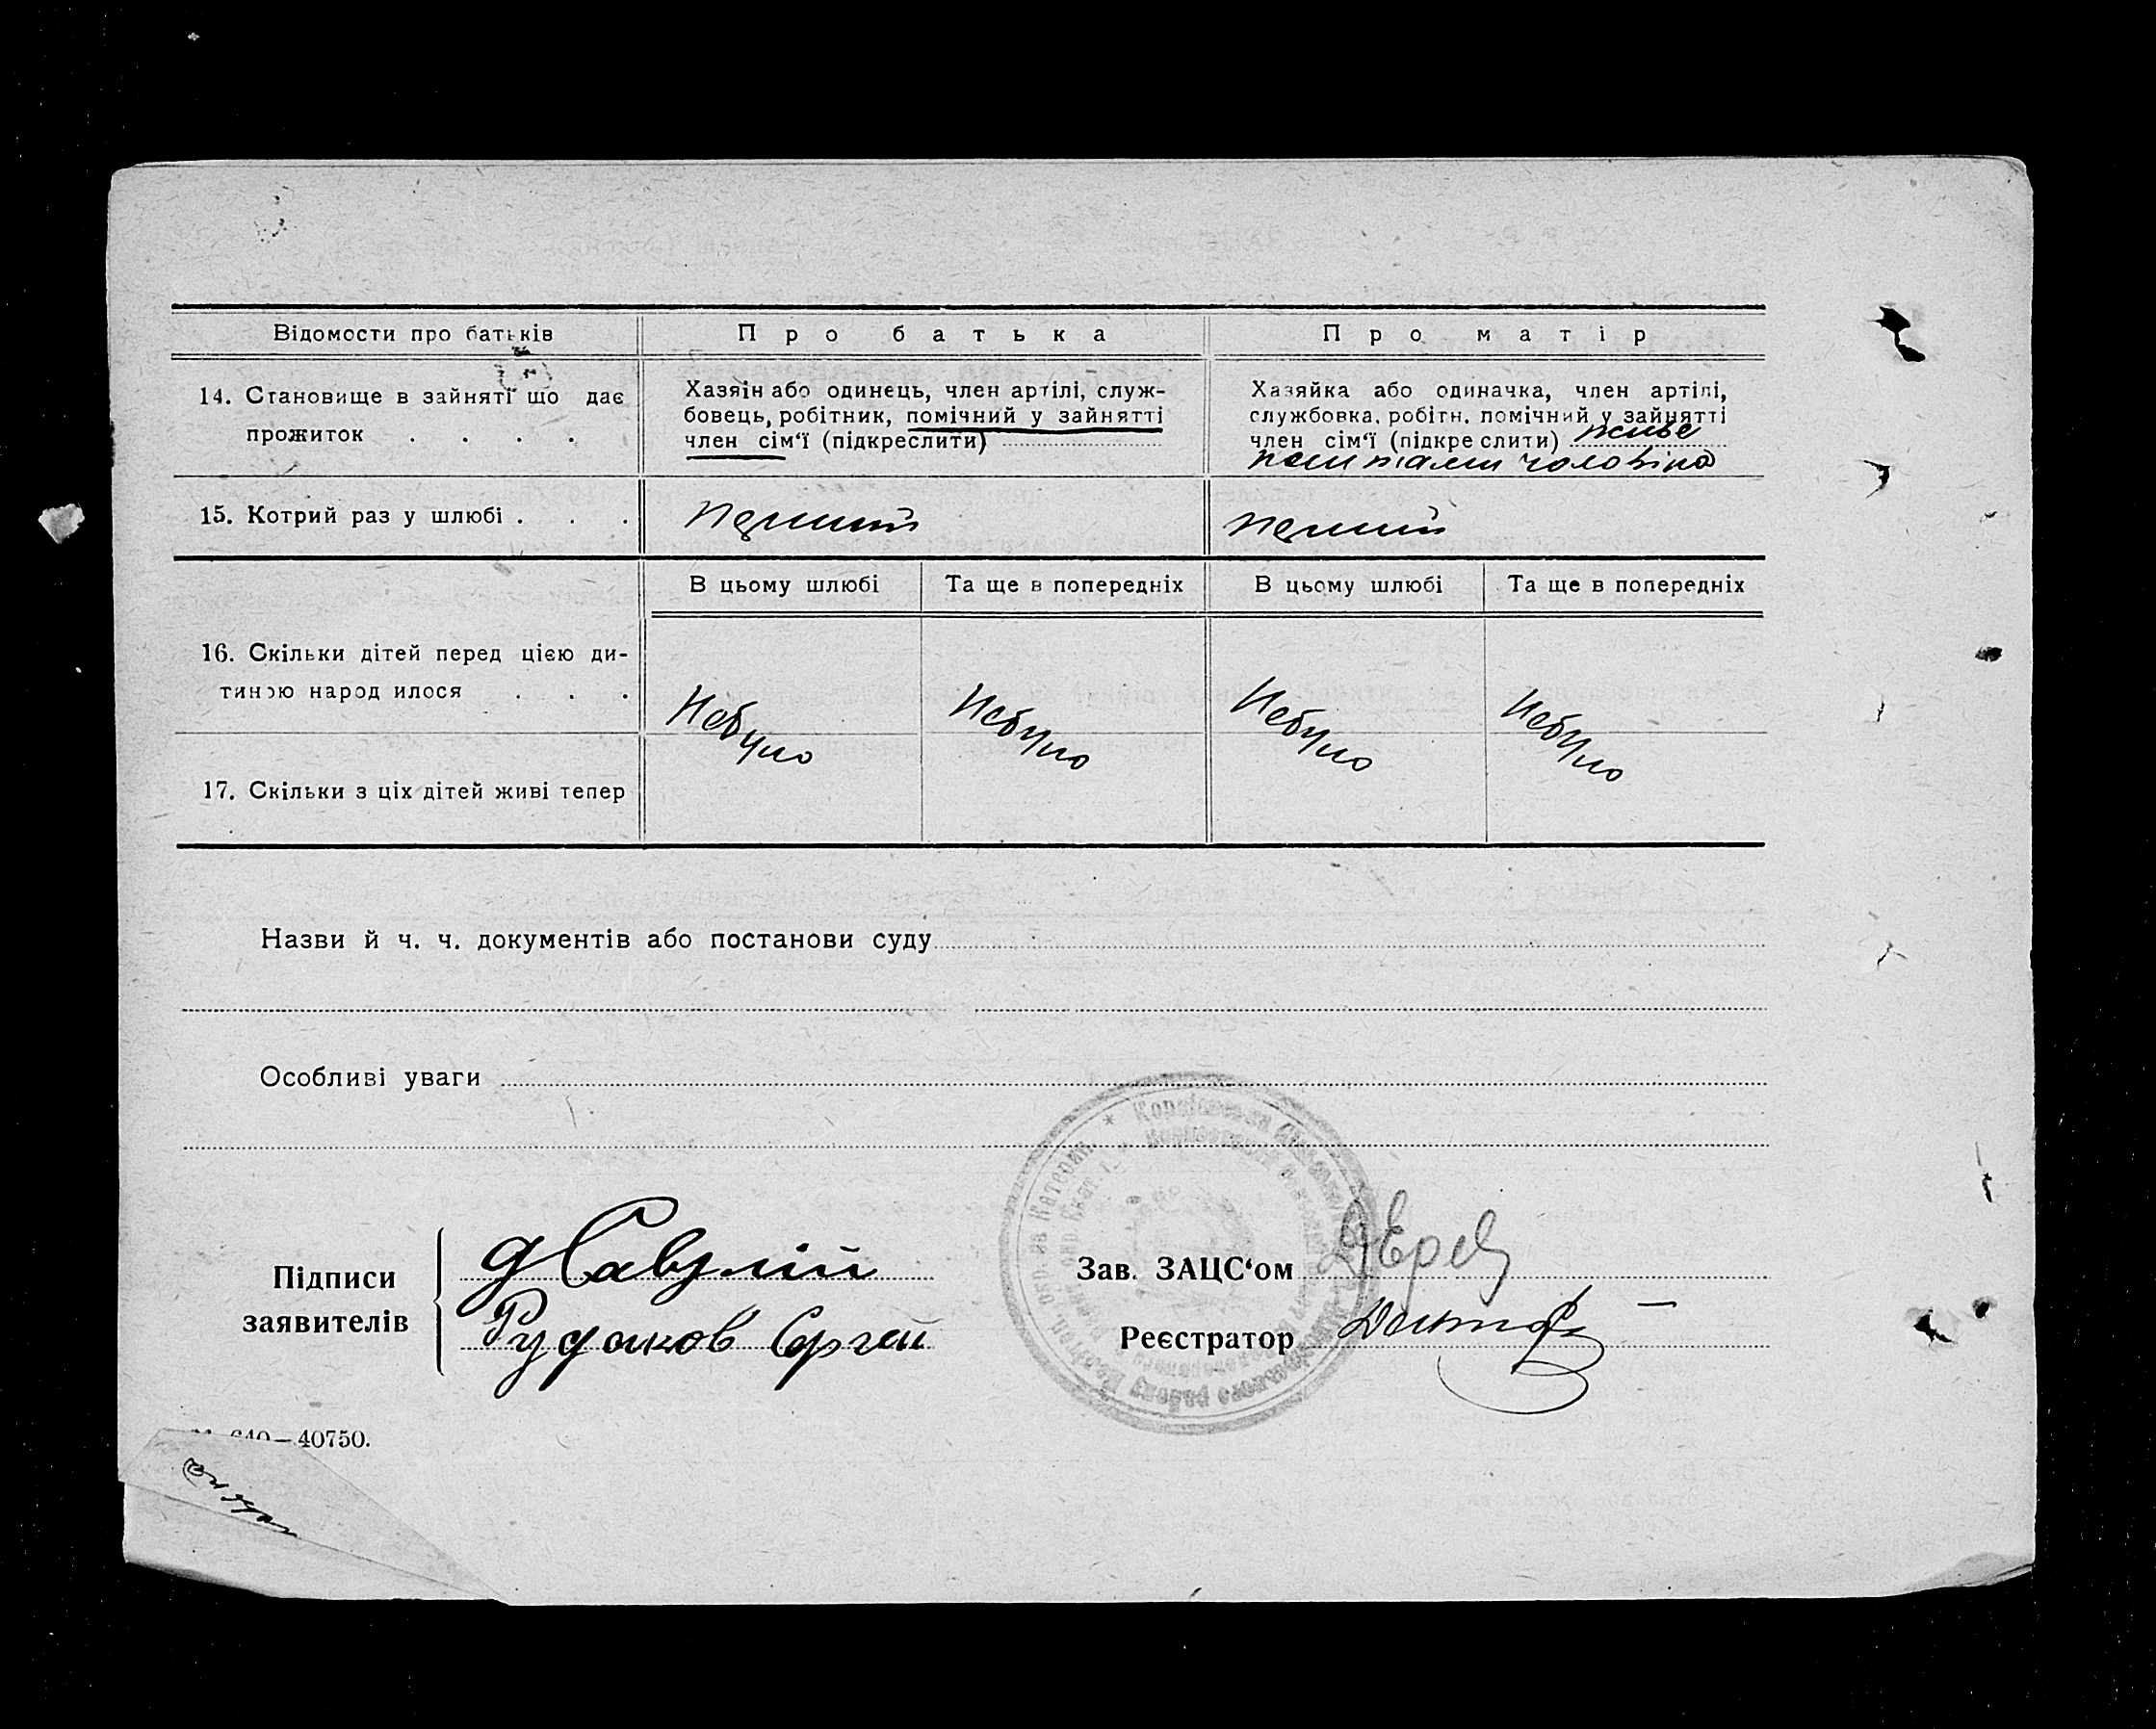 Відомости про батьків
Про батька
Про матір
14. Становище в зайняті що дає
прожиток . . . .
Хазяїн або одинець, член артілі, служ-
бовець, робітник, помічний у зайнятті
член сім'ї (підкреслити)
Хазяйка або одиначка, член артілі,
службовка, робітн. помічний у зайнятті
член сім'ї (підкреслити) живе
чоловіка
15. Котрий раз у шлюбі . . .
перший
перший
В цьому шлюбі
Та ще в попередніх
В цьому шлюбі
Та ще в попередніх
16. Скільки дітей перед цією ди-
тиною народилося . . .
Небуло
Небуло
Небуло
Небуло
17. Скільки з ціх дітей живі тепер
Назви й ч. ч. документів або постанови суду
Особливі уваги
Підписи
заявителів
Рудаков Сергей
Зав. ЗАЦС'ом
Реєстратор
640—40750.